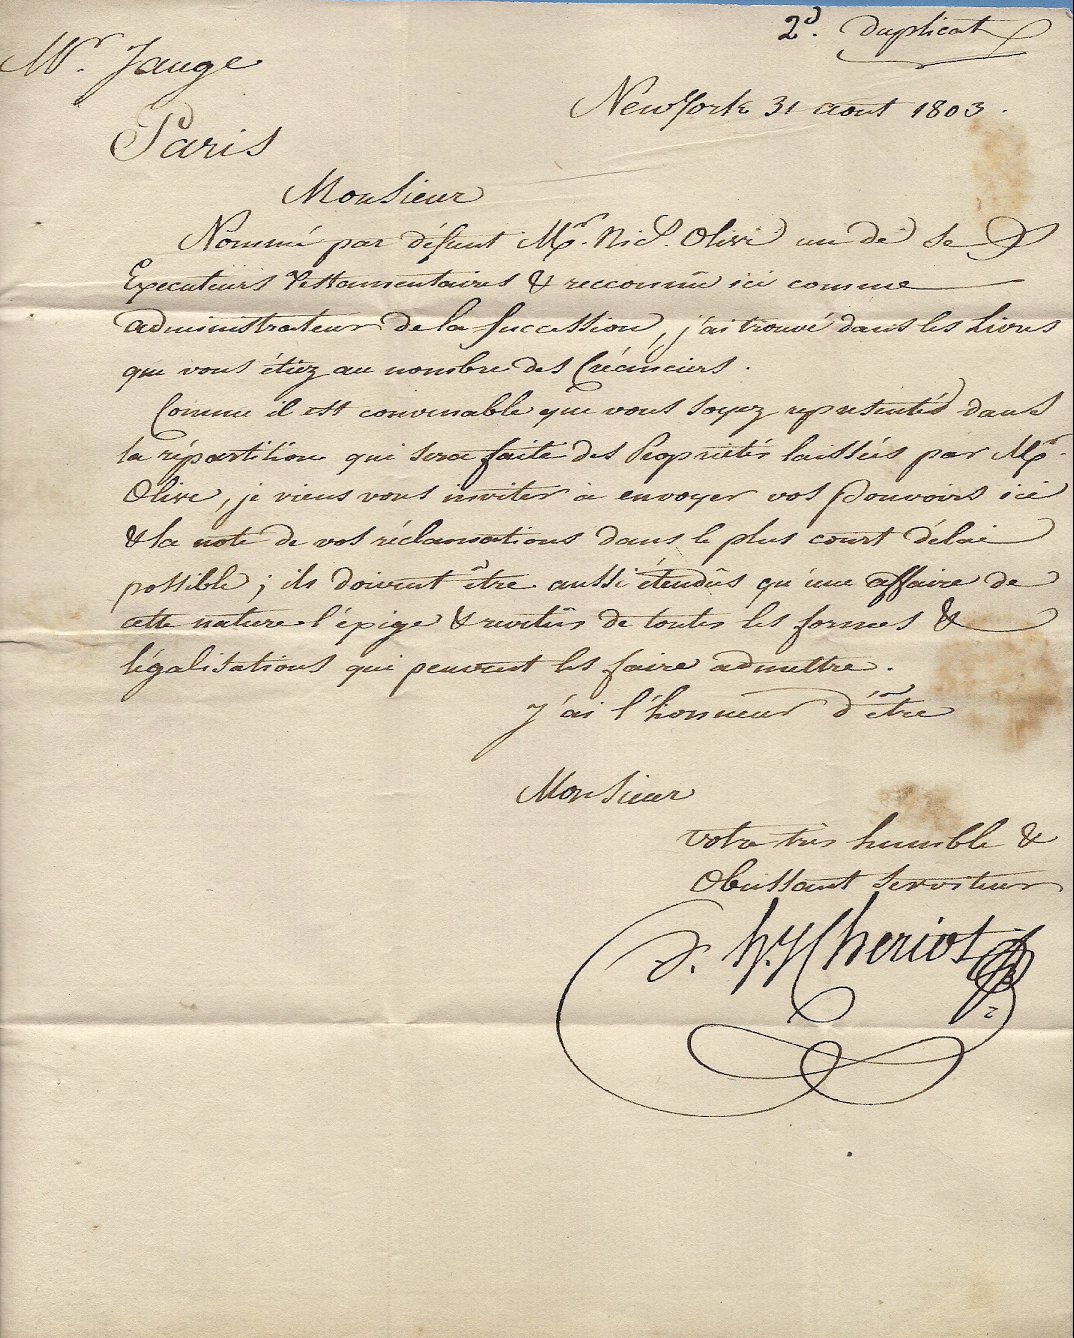 2d. Duplicat
Mr. Jauge
New York 31 aout 1803.
Paris
Monsieur
Nommé par défunt Mr. Nics. Olive un de ses
Executeurs Testamentaires & reconnu ici comme
administrateur de la succession, j'ai trouvé dans les Livres
que vous étiez au nombre des Créanciers.
Comme il est convenable que vous soyez representé dans
la répartition qui sera faite des Propriétés laissées par Mr.
Olive, je viens vous inviter à envoyer vos pouvoirs ici
& la note de vos réclamations dans le plus court délai
possible; ils doivent être aussi étendûs qu'une affaire de
cette nature l'éxige & revetûs de toutes les formes &
légalisations qui peuvent les faire admettre.
J'ai l'honneur d'être
Monsieur
votre très humble &
Obeissant Serviteur
Cheriot